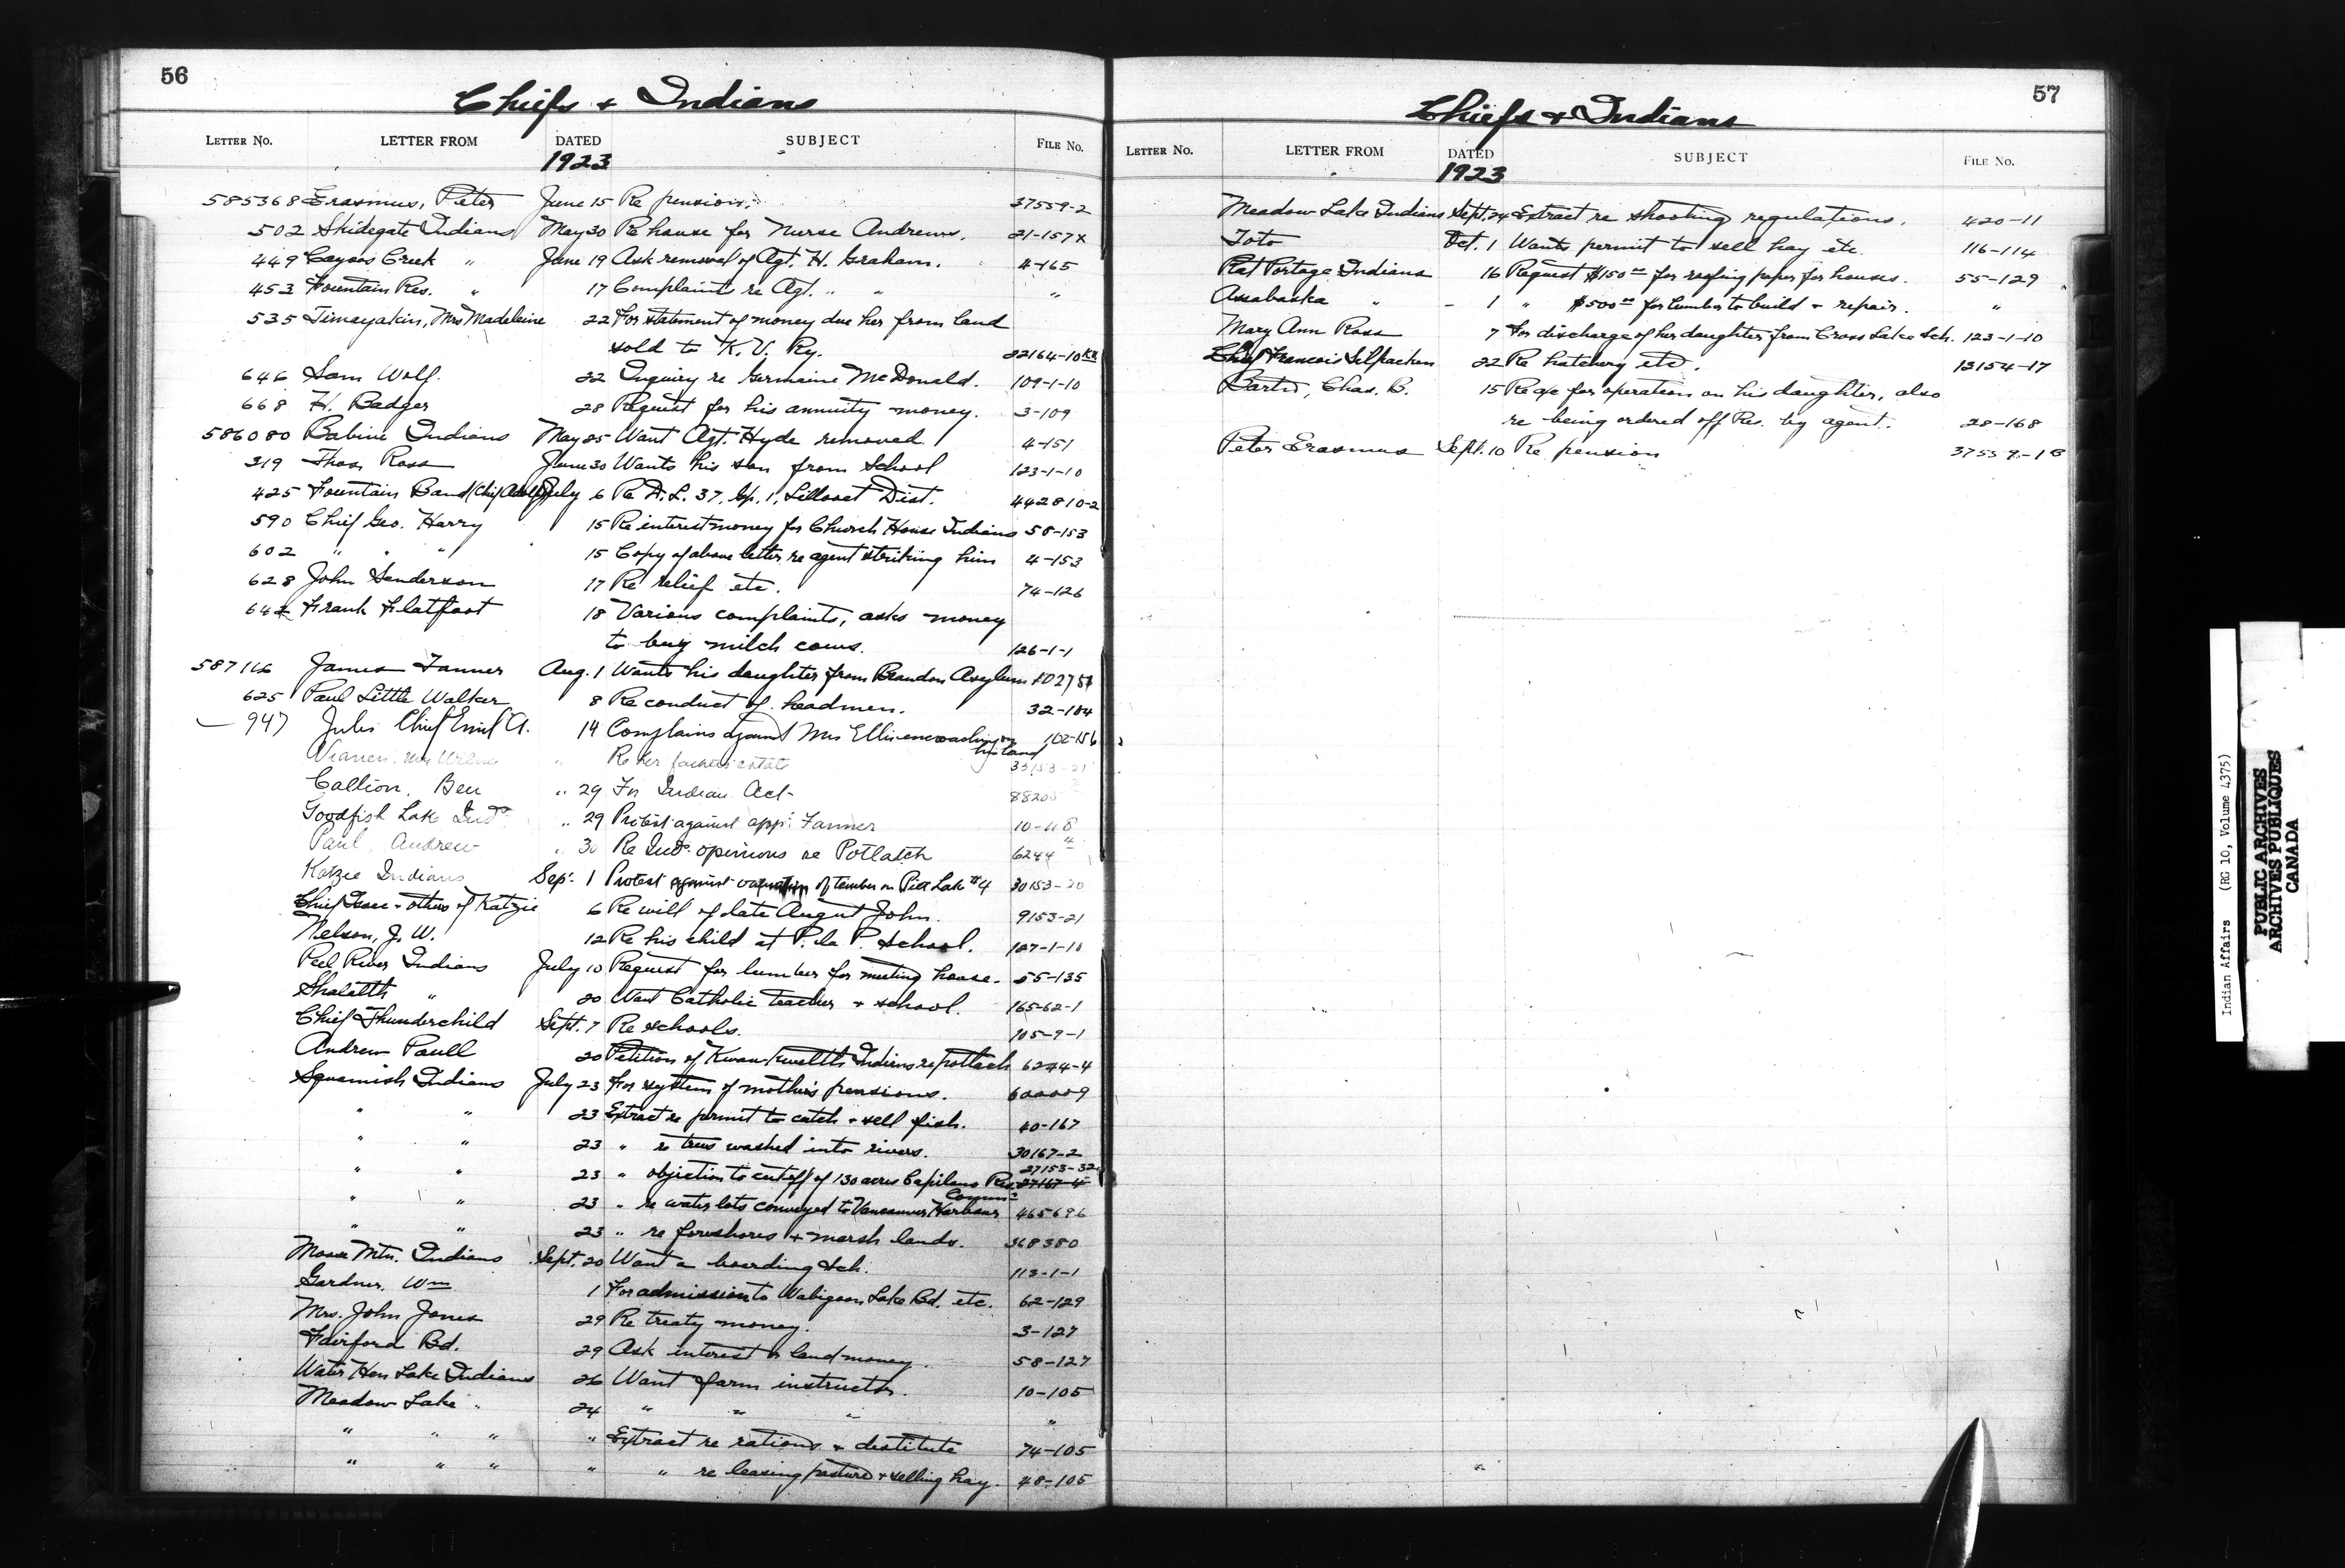 56
Chiefs & Indians
LETTER No. LETTER FROM DATED SUBJECT FILE No.
1923
585368 Erasmus, Peter June 15 Re pension. 37559-2
502 Skidegate Indians May 30 Re house for Nurse Andrews. 21-157X
449 Cayoos Creek " June 19 Ask removal of Agt. H. Graham. 4-165
453 Fountain Res. " 17 Complaints re Agt. " " "
535 Timayakin, Mrs Madeleine 22 For statement of money due her from land
sold to K. V. Ry. 22164-10
646 Sam Wolf. 22 Inquiry re Germaine McDonald. 109-1-10
668 H. Badger 28 Request for his annuity money. 3-109
586080 Babine Indians May 25 Want Agt. Hyde removed 4-151
319 Thos. Ross June 30 Wants his son from School 123-1-10
425 Fountain Band (Chief Adolph) July 6 Re D.L. 37, Gp. 1, Lillooet Dist. 442810-2
590 Chief Geo. Harry 15 Re interest money for Church House Indians 58-153
602 " " " 15 Copy of above letter re agent striking him 4-153
628 John Sanderson 17 Re relief etc. 74-126
642 Frank Flatfoot 18 Various complaints, asks money
to buy milch cows. 126-1-1
587116 James Tanner Aug. 1 Wants his daughter from Brandon Asylum
625 Paul Little Walker 8 Re conduct of headmen. 32-104
947 Jules Chief Emil A. 14 Complains against Mrs Ellis encroaching on
his land 102-156
Re her fathers estate 33153-21
Callion, Ben " 29 For Indian Act 88205
Goodfish Lake Inds. " 29 Protest against app. Farmer 10-118
Paul, Andrew " 30 Re Inds. opinions re Potlatch 6244 4
Katzie Indians Sep. 1 Protest against valuation of timber on Pitt Lake #4 30153-20
Chief Isaac & others of Katzie 6 Re will of late August John. 9153-21
Nelson, J. W. 12 Re his child at P. la P. School. 127-1-10
Peel River Indians July 10 Request for lumber for meeting house. 55-135
Shalalth " 20 Want Catholic teacher & school. 165-62-1
Chief Thunderchild Sept. 7 Re schools. 105-9-1
Andrew Paull 20 Petition of Kwawkwelth Indians re potlach 6244-4
Squamish Indians July 23 For system of mothers pensions. 600009
" " 23 Extract re permit to catch & sell fish. 40-167
" " 23 " re trees washed into rivers. 30167-2
27153-32
" " 23 " objection to cutoff of 130 acres Capilano Res. 27167-4
Comm.
" " 23 " re water lots conveyed to Vancouver Harbour 465696
" " 23 " re foreshores & marsh lands. 368380
Moose Mtn. Indians Sept. 20 Want a boarding Sch. 113-1-1
Gardner, Wm 1 For admission to Wabigoon Lake Bd. etc. 62-129
Mrs. John Jones 29 Re treaty money. 3-127
Fairford Bd. 29 Ask interest & land money. 58-127
Water Hen Lake Indians 26 Want farm instructor. 10-105
Meadow Lake " 24 " " " "
" " " " Extract re rations & destitute 74-105
" " " " " re leasing pasture & selling hay. 48-105
57
Chiefs & Indians
LETTER No. LETTER FROM DATED SUBJECT FILE No.
1923
Meadow Lake Indians Sept. 24 Extract re shooting regulations. 420-11
Toto Oct. 1 Wants permit to sell hay etc. 116-114
Rat Portage Indians 16 Request $150.00 for roofing paper for houses. 55-129
Assabaska " - 1 " $500.00 for lumber to build & repair. "
Mary Ann Ross 7 For discharge of her daughter from Cross Lake Sch. 123-1-10
Chief Francois Selpachen 22 Re hatchery etc. 12154-17
Chas. B. 15 Re a/c for operation on his daughter, also
re being ordered off Res. by agent. 28-168
Peter Erasmus Sept. 10 Re pension
Indian Affairs (RG 10, Volume 4375)
PUBLIC ARCHIVES
ARCHIVES PUBLIQUES
CANADA